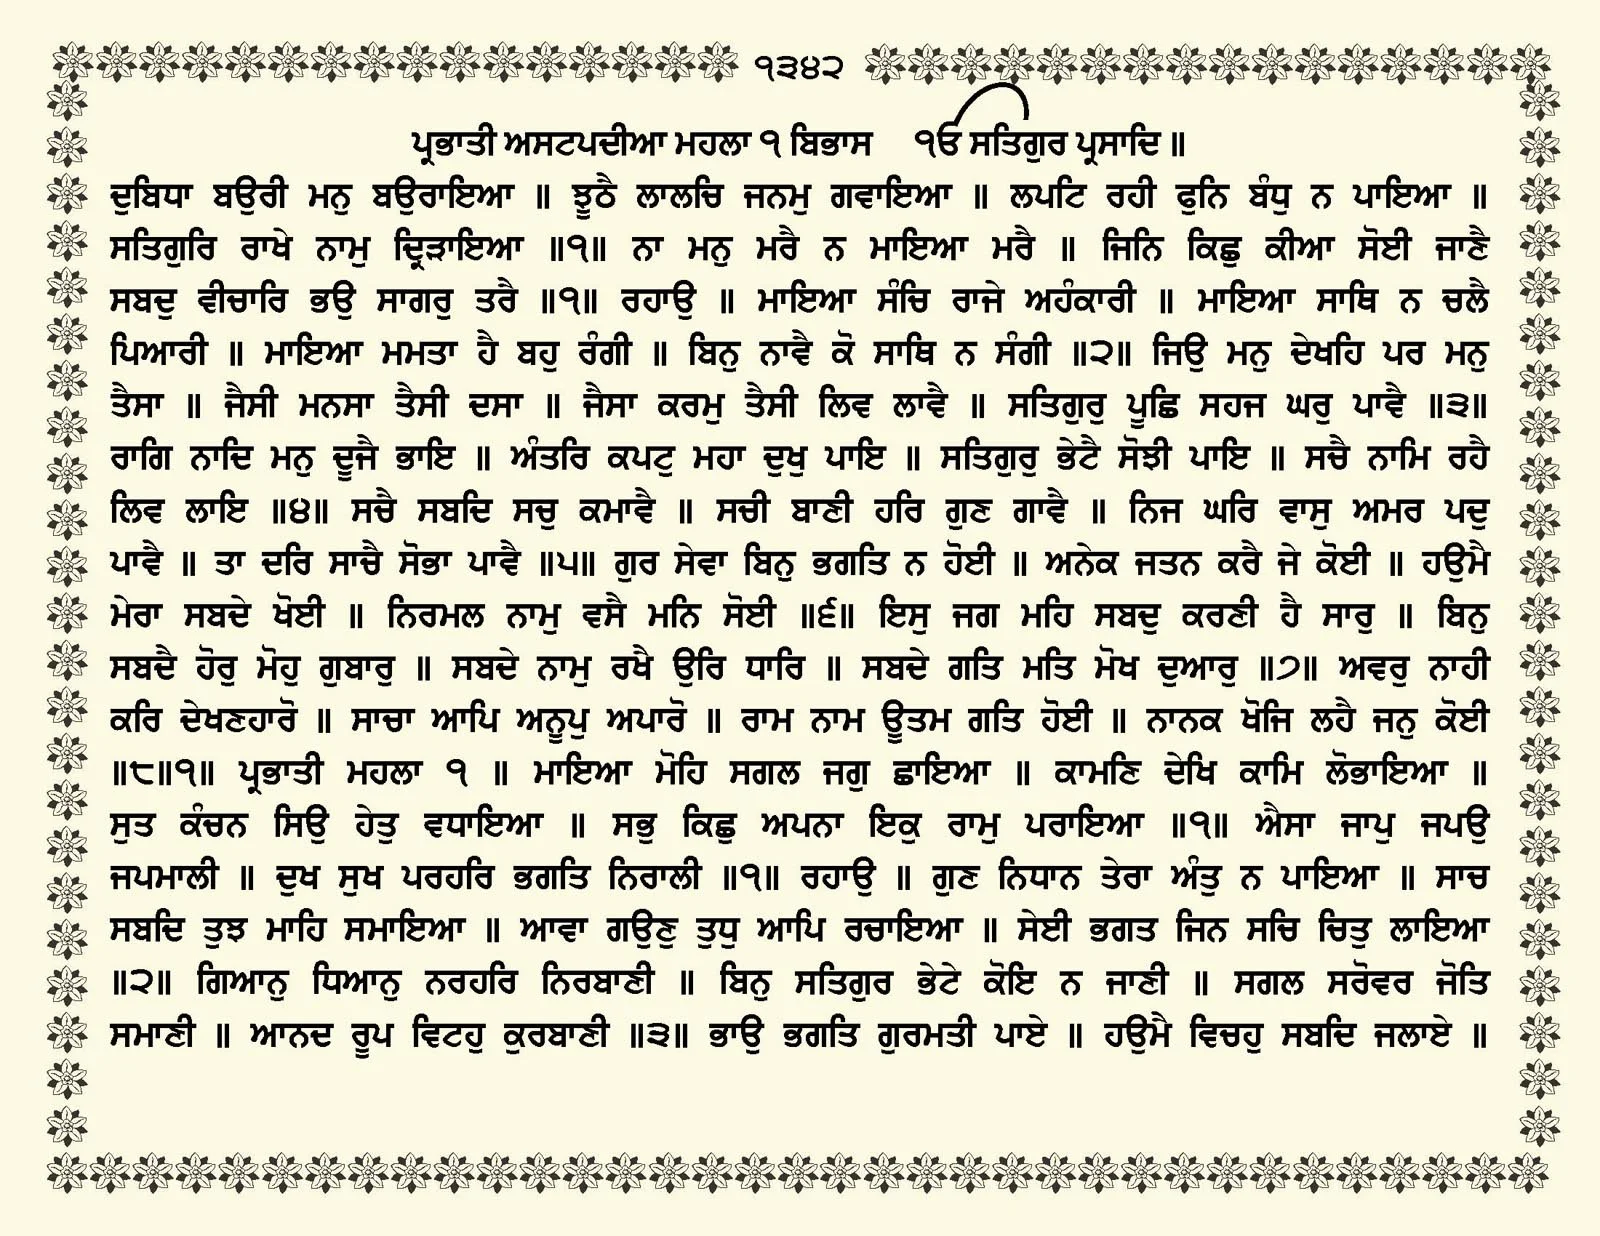 ੧੩੪੨
ਪ੍ਰਭਾਤੀ ਅਸਟਪਦੀਆ ਮਹਲਾ ੧ ਬਿਭਾਸ ੴ ਸਤਿਗੁਰ ਪ੍ਰਸਾਦਿ ॥
ਦੁਬਿਧਾ ਬਉਰੀ ਮਨੁ ਬਉਰਾਇਆ ॥ ਝੂਠੈ ਲਾਲਚਿ ਜਨਮੁ ਗਵਾਇਆ ॥ ਲਪਟਿ ਰਹੀ ਫੁਨਿ ਬੰਧੁ ਨ ਪਾਇਆ ॥
ਸਤਿਗੁਰਿ ਰਾਖੇ ਨਾਮੁ ਦ੍ਰਿੜਾਇਆ ॥੧॥ ਨਾ ਮਨੁ ਮਰੈ ਨ ਮਾਇਆ ਮਰੈ ॥ ਜਿਨਿ ਕਿਛੁ ਕੀਆ ਸੋਈ ਜਾਣੈ
ਸਬਦੁ ਵੀਚਾਰਿ ਭਉ ਸਾਗਰੁ ਤਰੈ ॥੧॥ ਰਹਾਉ ॥ ਮਾਇਆ ਸੰਚਿ ਰਾਜੇ ਅਹੰਕਾਰੀ ॥ ਮਾਇਆ ਸਾਥਿ ਨ ਚਲੈ
ਪਿਆਰੀ ॥ ਮਾਇਆ ਮਮਤਾ ਹੈ ਬਹੁ ਰੰਗੀ ॥ ਬਿਨੁ ਨਾਵੈ ਕੋ ਸਾਥਿ ਨ ਸੰਗੀ ॥੨॥ ਜਿਉ ਮਨੁ ਦੇਖਹਿ ਪਰ ਮਨੁ
ਤੈਸਾ ॥ ਜੈਸੀ ਮਨਸਾ ਤੈਸੀ ਦਸਾ ॥ ਜੈਸਾ ਕਰਮੁ ਤੈਸੀ ਲਿਵ ਲਾਵੈ ॥ ਸਤਿਗੁਰੁ ਪੂਛਿ ਸਹਜ ਘਰੁ ਪਾਵੈ ॥੩॥
ਰਾਗਿ ਨਾਦਿ ਮਨੁ ਦੂਜੈ ਭਾਇ ॥ ਅੰਤਰਿ ਕਪਟੁ ਮਹਾ ਦੁਖੁ ਪਾਇ ॥ ਸਤਿਗੁਰੁ ਭੇਟੈ ਸੋਝੀ ਪਾਇ ॥ ਸਚੈ ਨਾਮਿ ਰਹੈ
ਲਿਵ ਲਾਇ ॥੪॥ ਸਚੈ ਸਬਦਿ ਸਚੁ ਕਮਾਵੈ ॥ ਸਚੀ ਬਾਣੀ ਹਰਿ ਗੁਣ ਗਾਵੈ ॥ ਨਿਜ ਘਰਿ ਵਾਸੁ ਅਮਰ ਪਦੁ
ਪਾਵੈ ॥ ਤਾ ਦਰਿ ਸਾਚੈ ਸੋਭਾ ਪਾਵੈ ॥੫॥ ਗੁਰ ਸੇਵਾ ਬਿਨੁ ਭਗਤਿ ਨ ਹੋਈ ॥ ਅਨੇਕ ਜਤਨ ਕਰੈ ਜੇ ਕੋਈ ॥ ਹਉਮੈ
ਮੇਰਾ ਸਬਦੇ ਖੋਈ ॥ ਨਿਰਮਲ ਨਾਮੁ ਵਸੈ ਮਨਿ ਸੋਈ ॥੬॥ ਇਸੁ ਜਗ ਮਹਿ ਸਬਦੁ ਕਰਣੀ ਹੈ ਸਾਰੁ ॥ ਬਿਨੁ
ਸਬਦੈ ਹੋਰੁ ਮੋਹੁ ਗੁਬਾਰੁ ॥ ਸਬਦੇ ਨਾਮੁ ਰਖੈ ਉਰਿ ਧਾਰਿ ॥ ਸਬਦੇ ਗਤਿ ਮਤਿ ਮੋਖ ਦੁਆਰੁ ॥੭॥ ਅਵਰੁ ਨਾਹੀ
ਕਰਿ ਦੇਖਣਹਾਰੋ ॥ ਸਾਚਾ ਆਪਿ ਅਨੂਪੁ ਅਪਾਰੋ ॥ ਰਾਮ ਨਾਮ ਊਤਮ ਗਤਿ ਹੋਈ ॥ ਨਾਨਕ ਖੋਜਿ ਲਹੈ ਜਨੁ ਕੋਈ
॥੮॥੧॥ ਪ੍ਰਭਾਤੀ ਮਹਲਾ ੧ ॥ ਮਾਇਆ ਮੋਹਿ ਸਗਲ ਜਗੁ ਛਾਇਆ ॥ ਕਾਮਣਿ ਦੇਖਿ ਕਾਮਿ ਲੋਭਾਇਆ ॥
ਸੁਤ ਕੰਚਨ ਸਿਉ ਹੇਤੁ ਵਧਾਇਆ ॥ ਸਭੁ ਕਿਛੁ ਅਪਨਾ ਇਕੁ ਰਾਮੁ ਪਰਾਇਆ ॥੧॥ ਐਸਾ ਜਾਪੁ ਜਪਉ
ਜਪਮਾਲੀ ॥ ਦੁਖ ਸੁਖ ਪਰਹਰਿ ਭਗਤਿ ਨਿਰਾਲੀ ॥੧॥ ਰਹਾਉ ॥ ਗੁਣ ਨਿਧਾਨ ਤੇਰਾ ਅੰਤੁ ਨ ਪਾਇਆ ॥ ਸਾਚ
ਸਬਦਿ ਤੁਝ ਮਾਹਿ ਸਮਾਇਆ ॥ ਆਵਾ ਗਉਣੁ ਤੁਧੁ ਆਪਿ ਰਚਾਇਆ ॥ ਸੇਈ ਭਗਤ ਜਿਨ ਸਚਿ ਚਿਤੁ ਲਾਇਆ
॥੨॥ ਗਿਆਨੁ ਧਿਆਨੁ ਨਰਹਰਿ ਨਿਰਬਾਣੀ ॥ ਬਿਨੁ ਸਤਿਗੁਰ ਭੇਟੇ ਕੋਇ ਨ ਜਾਣੀ ॥ ਸਗਲ ਸਰੋਵਰ ਜੋਤਿ
ਸਮਾਣੀ ॥ ਆਨਦ ਰੂਪ ਵਿਟਹੁ ਕੁਰਬਾਣੀ ॥੩॥ ਭਾਉ ਭਗਤਿ ਗੁਰਮਤੀ ਪਾਏ ॥ ਹਉਮੈ ਵਿਚਹੁ ਸਬਦਿ ਜਲਾਏ ॥